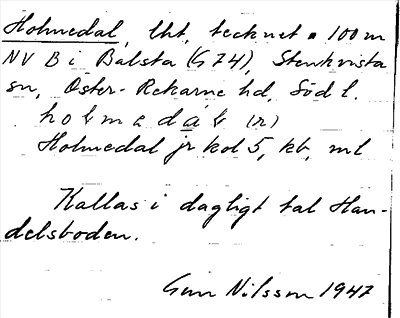 Holmedal, lht, tecknet ▪ 100 m
NV B i Balsta (G 74), Stenkvista
sn, Öster-Rekarne hd, Södl.
holmedal (r)
Holmedal jr kol 5, kb, ml
Kallas i dagligt tal Han-
delsboden.
Gun Nilsson 1947